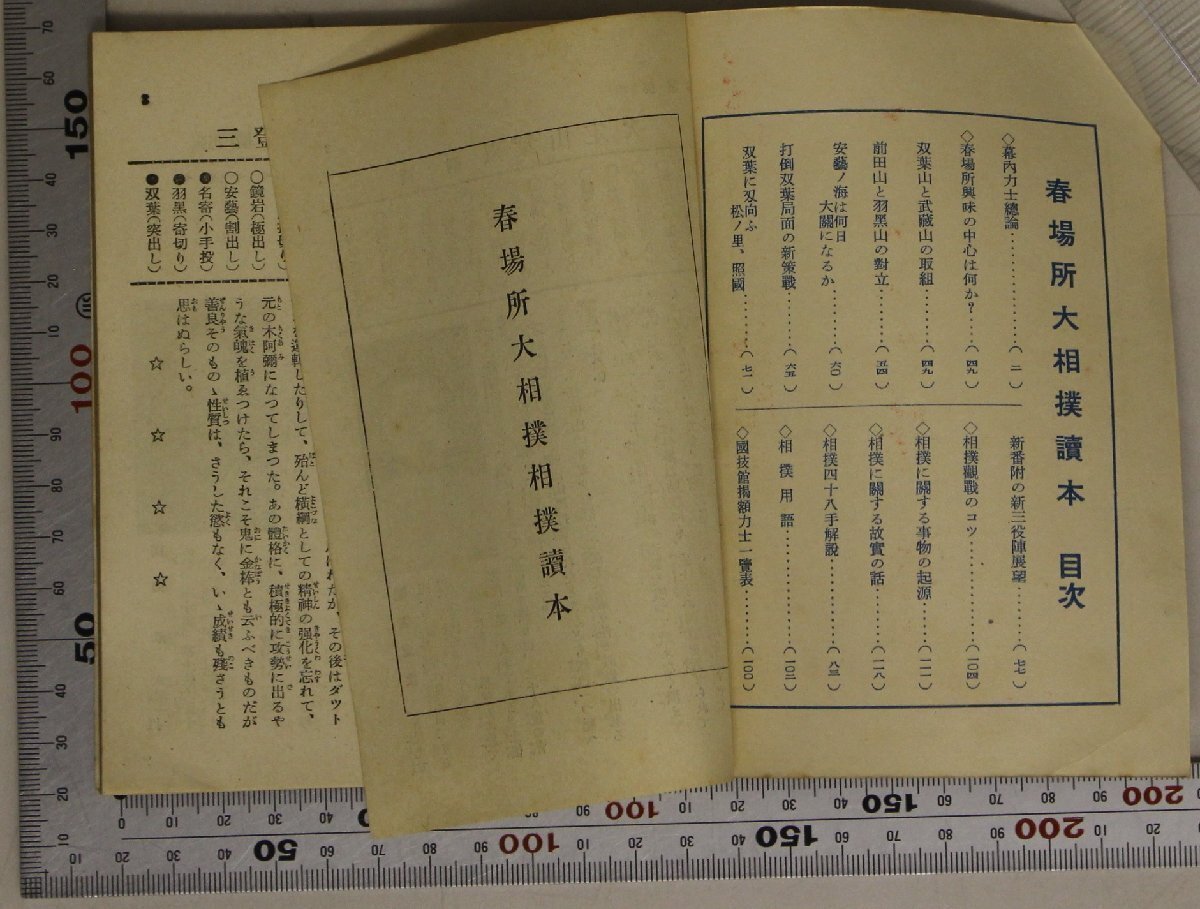 春場所大相撲讀本 目次
◇幕內力士總論…………(二)
◇春場所興味の中心は何か?……(四九)
双葉山と武藏山の取組………(四九)
前田山と羽黑山の對立………(五四)
安藝ノ海は何日
大關になるか……(六〇)
打倒双葉局面の新策戰……(六五)
双葉に刄向ふ
松ノ里、照國………(七一)
新番附の新三役陣展望……(七七)
◇相撲觀戰のコツ…………(一〇四)
◇相撲に關する事物の起源……(一一一)
◇相撲に關する故實の話……(一一八)
◇相撲四十八手解說…………(八三)
◇相撲用語……………(一〇二)
◇國技館揭額力士一覽表……(一〇〇)
春場所大相撲相撲讀本
三
○鏡岩(極出し)
○安藝(割出し)
●名寄(小手投)
●羽黑(寄切り)
●双葉(突出し)
その後はダツト
したりして、殆んど橫綱としての精神の强化を忘れて、
元の木阿彌になつてしまつた。あの體格に、積極的に攻勢に出るや
うな氣魄を植ゑつけたら、それこそ鬼に金棒とも云ふべきものだが
善良そのものゝ性質は、さうした慾もなく、いゝ成績も殘さうとも
思はぬらしい。
☆ ☆ ☆ ☆